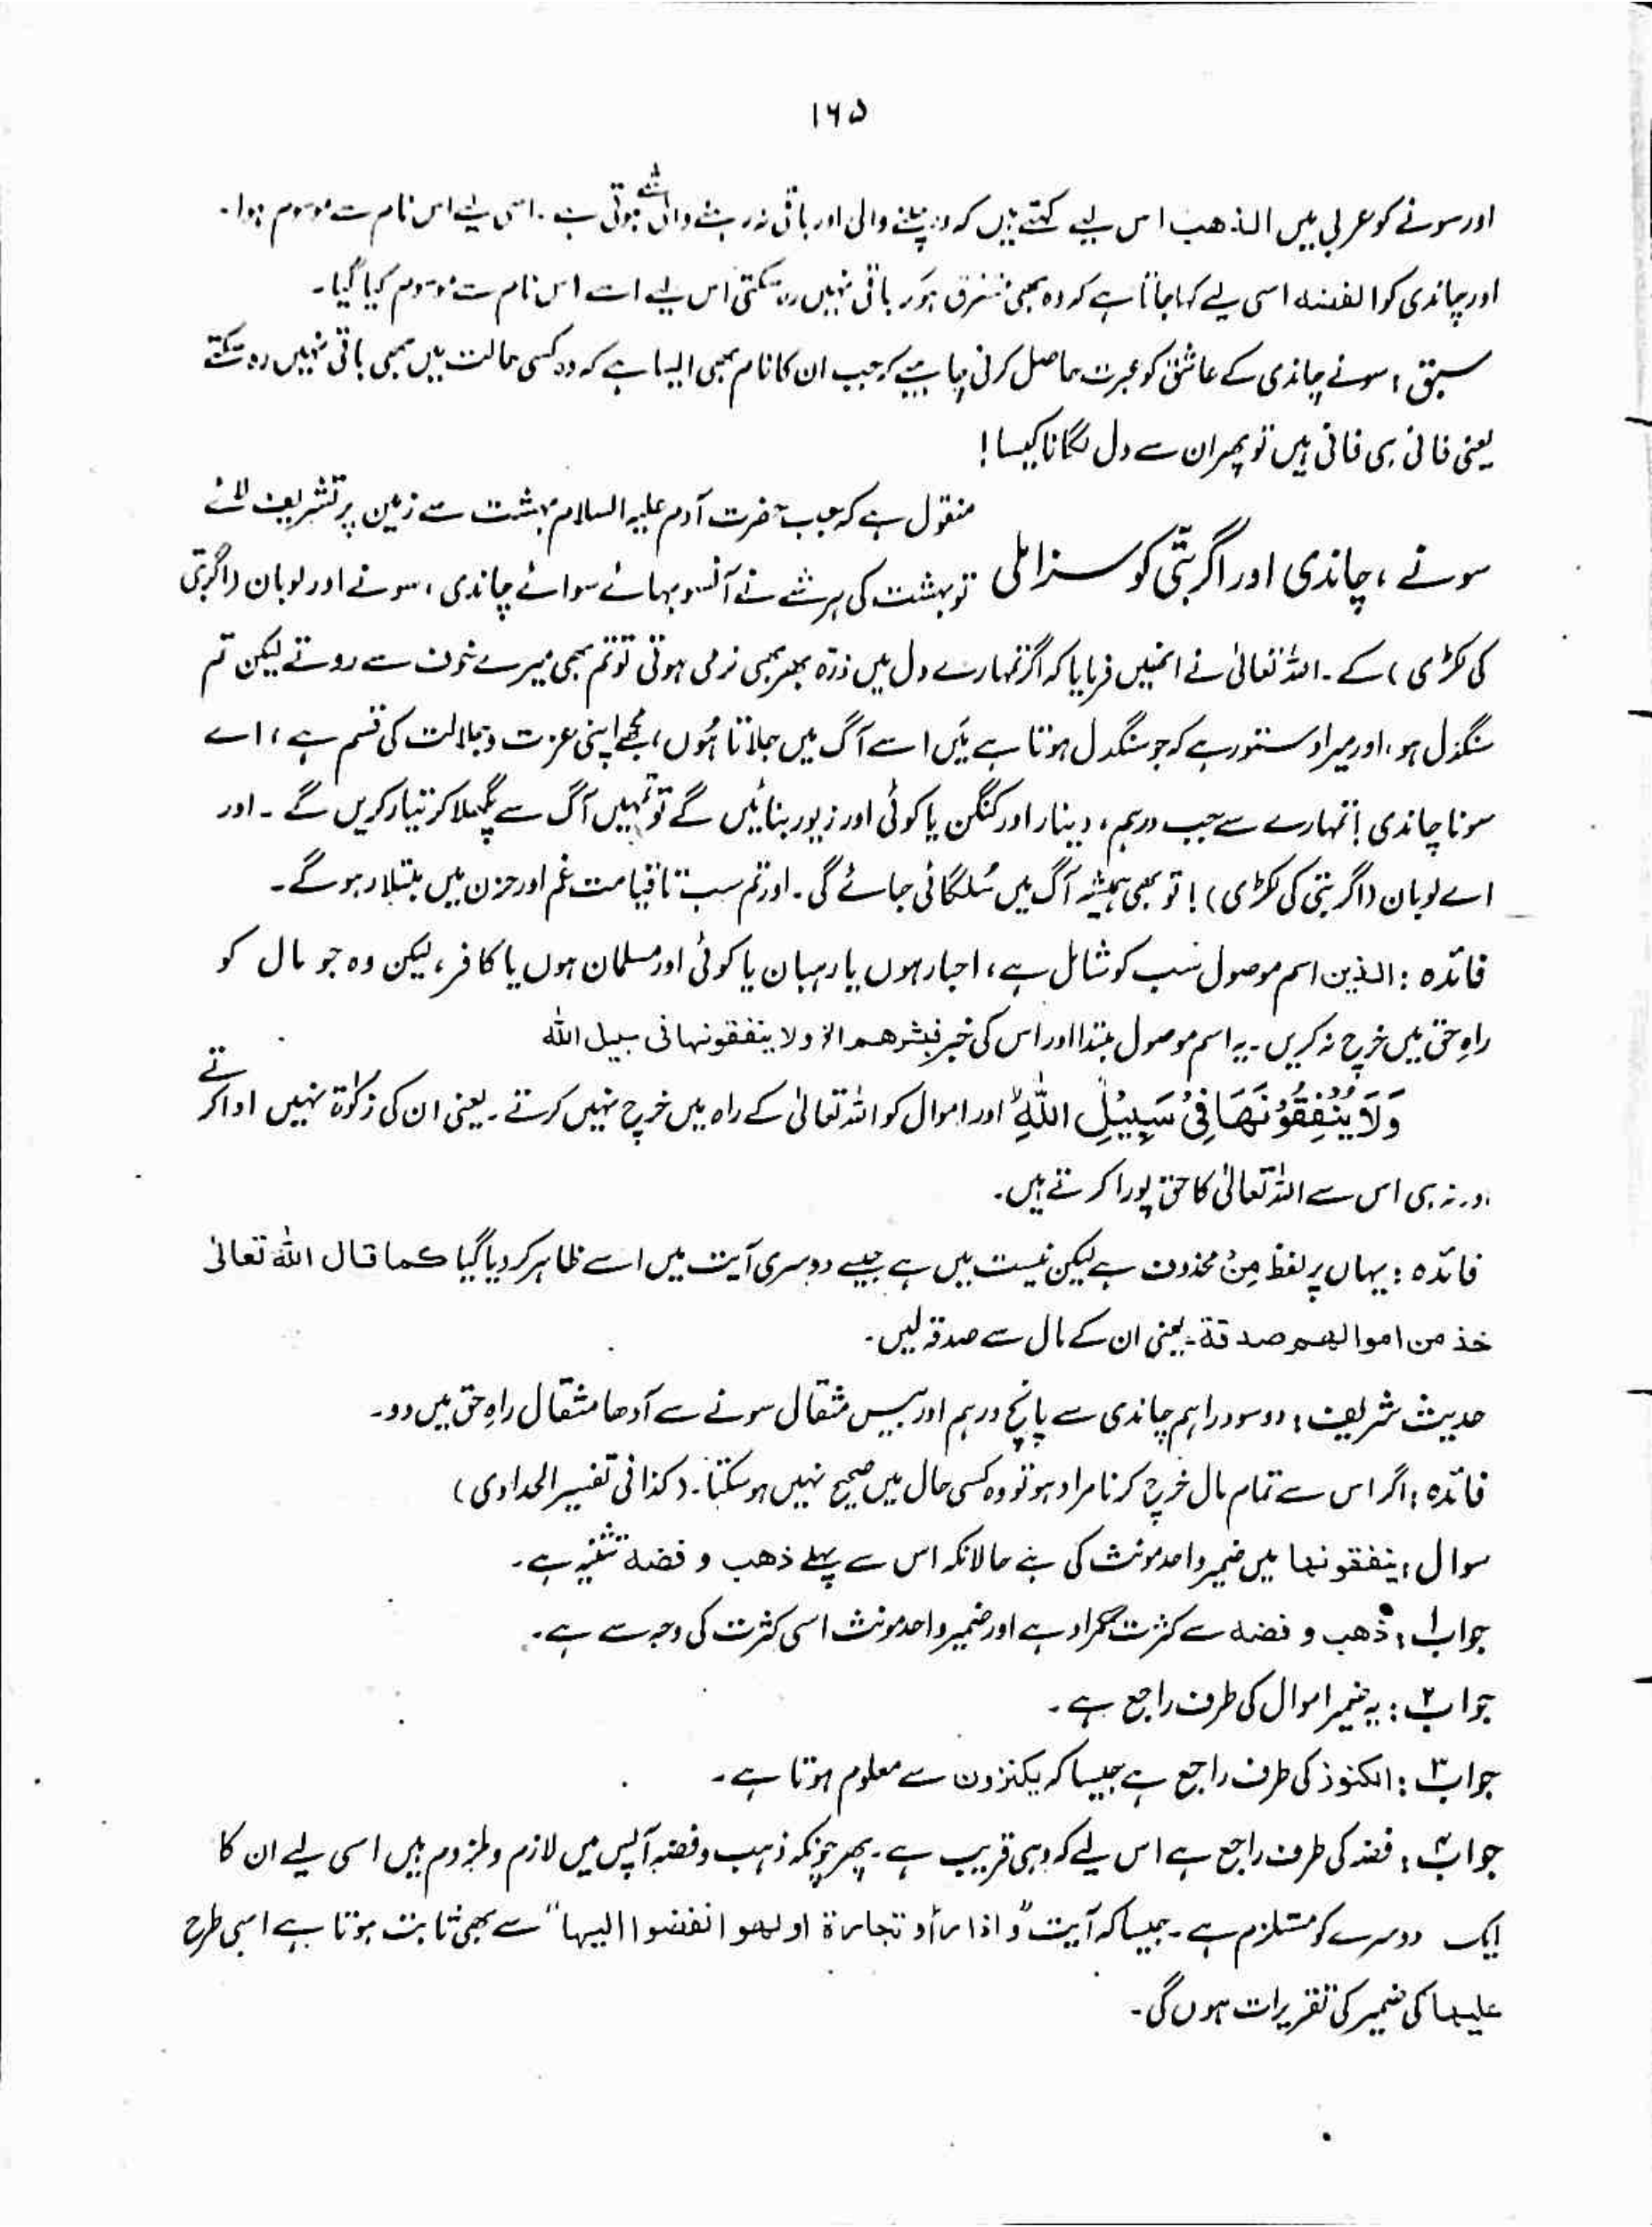 ۱۶۵
اور سونے کو عربی میں الذھب اس لیے کہتے ہیں کہ وہ چلنے والی اور باقی نہ رہنے والی شے ہوتی ہے۔ اسی لیے اس نام سے موسوم ہوا۔
اور چاندی کو الفضہ اسی لیے کہا جاتا ہے کہ وہ بھی متفرق ہو کر باقی نہیں رہ سکتی اس لیے اسے اس نام سے موسوم کیا گیا۔
سبق : سونے چاندی کے عاشق کو عبرت حاصل کرنی چاہیے کہ جب ان کا نام بھی ایسا ہے کہ وہ کسی حالت میں بھی باقی نہیں رہ سکتے
یعنی فانی ہی فانی ہیں تو پھر ان سے دل لگانا کیسا!
سونے ، چاندی اور اگربتّی کو سزا ملی
منقول ہے کہ جب حضرت آدم علیہ السلام بہشت سے زمین پر تشریف لائے
تو بہشت کی ہر شے نے آنسو بہائے سوائے چاندی ، سونے اور لوبان (اگربتی
کی لکڑی) کے۔ اللہ تعالیٰ نے انھیں فرمایا کہ اگر تمہارے دل میں ذرّہ بھر بھی نرمی ہوتی تو تم بھی میرے خوف سے روتے لیکن تم
سنگدل ہو، اور میرا دستور ہے کہ جو سنگدل ہوتا ہے مَیں اسے آگ میں جلاتا ہُوں، مجھے اپنی عزت و جلالت کی قسم ہے ، اے
سونا چاندی ! تمہارے سے جب درہم ، دینار اور کنگن یا کوئی اور زیور بنائیں گے تو تمہیں آگ سے پگھلا کر تیار کریں گے ۔ اور
اے لوبان (اگربتی کی لکڑی) ! تو بھی ہمیشہ آگ میں سُلگائی جائے گی۔ اور تم سب تا قیامت غم اور حزن میں مبتلا رہو گے۔
فائدہ : الذین اسم موصول سب کو شامل ہے ، احبار ہوں یا رہبان یا کوئی اور مسلمان ہوں یا کافر ، لیکن وہ جو مال کو
راہِ حق میں خرچ نہ کریں۔ یہ اسم موصول مبتدا اور اس کی خبر فبشرھم الخ ولا ینفقونہا فی سبیل اللہ
وَلَا يُنْفِقُوْنَهَا فِيْ سَبِيْلِ اللّٰهِ اور اموال کو اللہ تعالیٰ کے راہ میں خرچ نہیں کرتے۔ یعنی ان کی زکوٰۃ نہیں ادا کرتے
اور نہ ہی اس سے اللہ تعالیٰ کا حق پورا کرتے ہیں۔
فائدہ : یہاں پر لفظ مِنْ محذوف ہے لیکن نیت میں ہے جیسے دوسری آیت میں اسے ظاہر کر دیا گیا کما قال اللہ تعالیٰ
خذ من اموالھم صدقة۔ یعنی ان کے مال سے صدقہ لیں۔
حدیث شریف : دو سو دراہم چاندی سے پانچ درہم اور بیس مثقال سونے سے آدھا مثقال راہِ حق میں دو۔
فائدہ : اگر اس سے تمام مال خرچ کرنا مراد ہو تو وہ کسی حال میں صحیح نہیں ہو سکتا۔ (کذا فی تفسیر الحدادی)
سوال : ینفقونھا میں ضمیر واحد مونث کی ہے حالانکہ اس سے پہلے ذھب و فضہ تثنیہ ہے۔
جواب۱ : ذھب و فضہ سے کثرت مراد ہے اور ضمیر واحد مونث اسی کثرت کی وجہ سے ہے۔
جواب۲ : یہ ضمیر اموال کی طرف راجع ہے۔
جواب۳ : الکنوز کی طرف راجع ہے جیسا کہ یکنزون سے معلوم ہوتا ہے۔
جواب۴ : فضہ کی طرف راجع ہے اس لیے کہ وہی قریب ہے۔ پھر چونکہ ذہب و فضہ آپس میں لازم و ملزوم ہیں اسی لیے ان کا
ایک دوسرے کو مستلزم ہے۔ جیسا کہ آیت "و اذا رأوا تجارۃ او لھوا انفضوا الیہا" سے بھی ثابت ہوتا ہے اسی طرح
علیہا کی ضمیر کی تقریرات ہوں گی۔